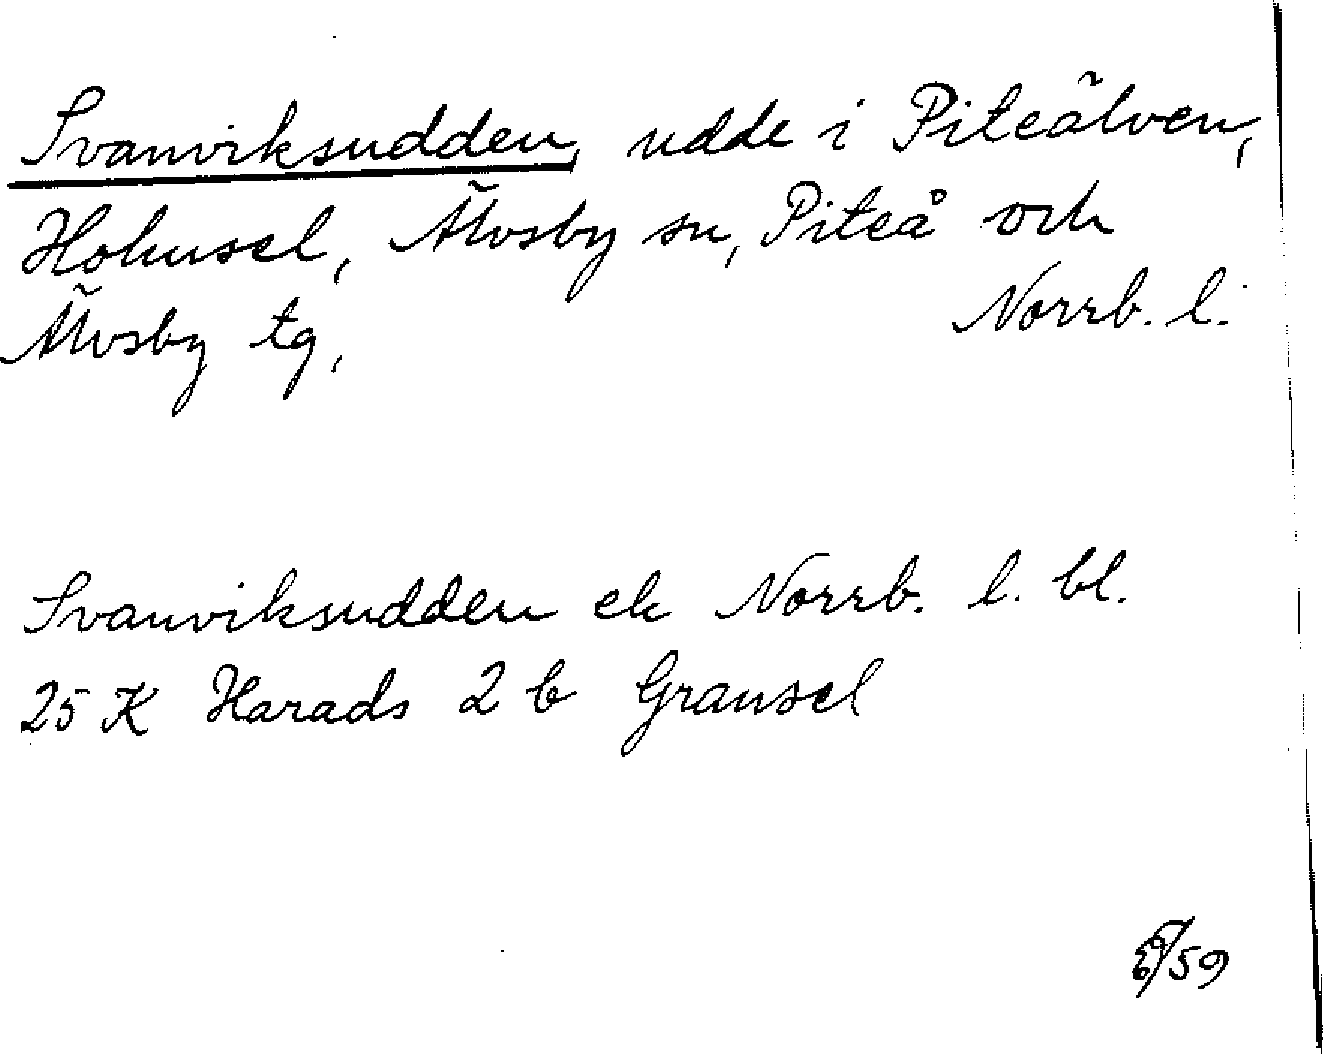 Svanviksudden, udde i Piteälven,
Hohusel, Älvsby sn, Piteå och
Älvsby tg, Norrb. l.
Svanviksudden ek Norrb. l. bl.
25 K Harads 2 b Gransel
/59